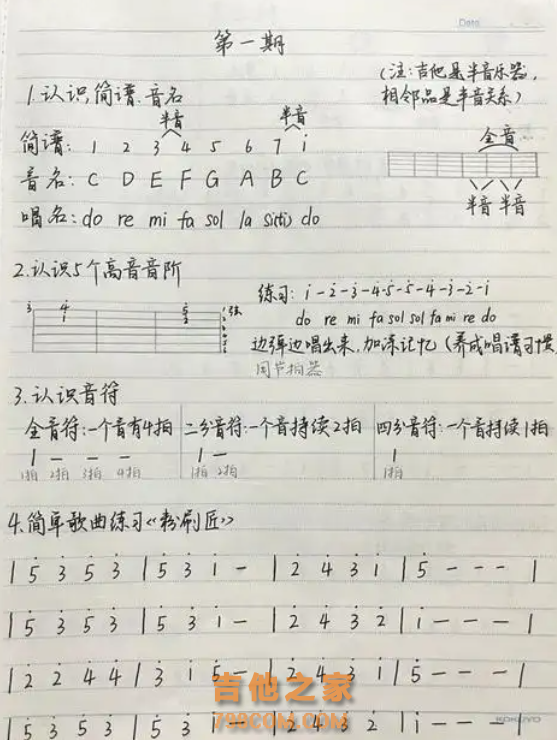 Date
第一期
(注:吉他是半音乐器,
相邻品是半音关系)
1.认识简谱、音名
半音 半音
简谱: 1 2 3 4 5 6 7 i
音名: C D E F G A B C
唱名: do re mi fa sol la si(ti) do
全音
半音 半音
2.认识5个高音音阶
3 4 5 1弦
1 2
练习: i - 2̇ - 3̇ - 4̇ - 5̇ - 5̇ - 4̇ - 3̇ - 2̇ - i
do re mi fa sol sol fa mi re do
边弹边唱出来,加深记忆(养成唱谱习惯
用节拍器
3.认识音符
全音符:一个音有4拍 二分音符:一个音持续2拍 四分音符:一个音持续1拍
1 - - - 1 - 1
1拍 2拍 3拍 4拍 1拍 2拍 1拍
4.简单歌曲练习《粉刷匠》
| 5̇ 3̇ 5̇ 3̇ | 5̇ 3̇ i - | 2̇ 4̇ 3̇ i | 5̇ - - - |
| 5̇ 3̇ 5̇ 3̇ | 5̇ 3̇ i - | 2̇ 4̇ 3̇ 2̇ | i - - - |
| 2̇ 2̇ 4̇ 4̇ | 3̇ i 5̇ - | 2̇ 4̇ 3̇ i | 5̇ - - - |
| 5̇ 3̇ 5̇ 3̇ | 5̇ 3̇ i - | 2̇ 4̇ 3̇ 2̇ | i - - - |
吉他之家
798COM.COM
KOKUYO